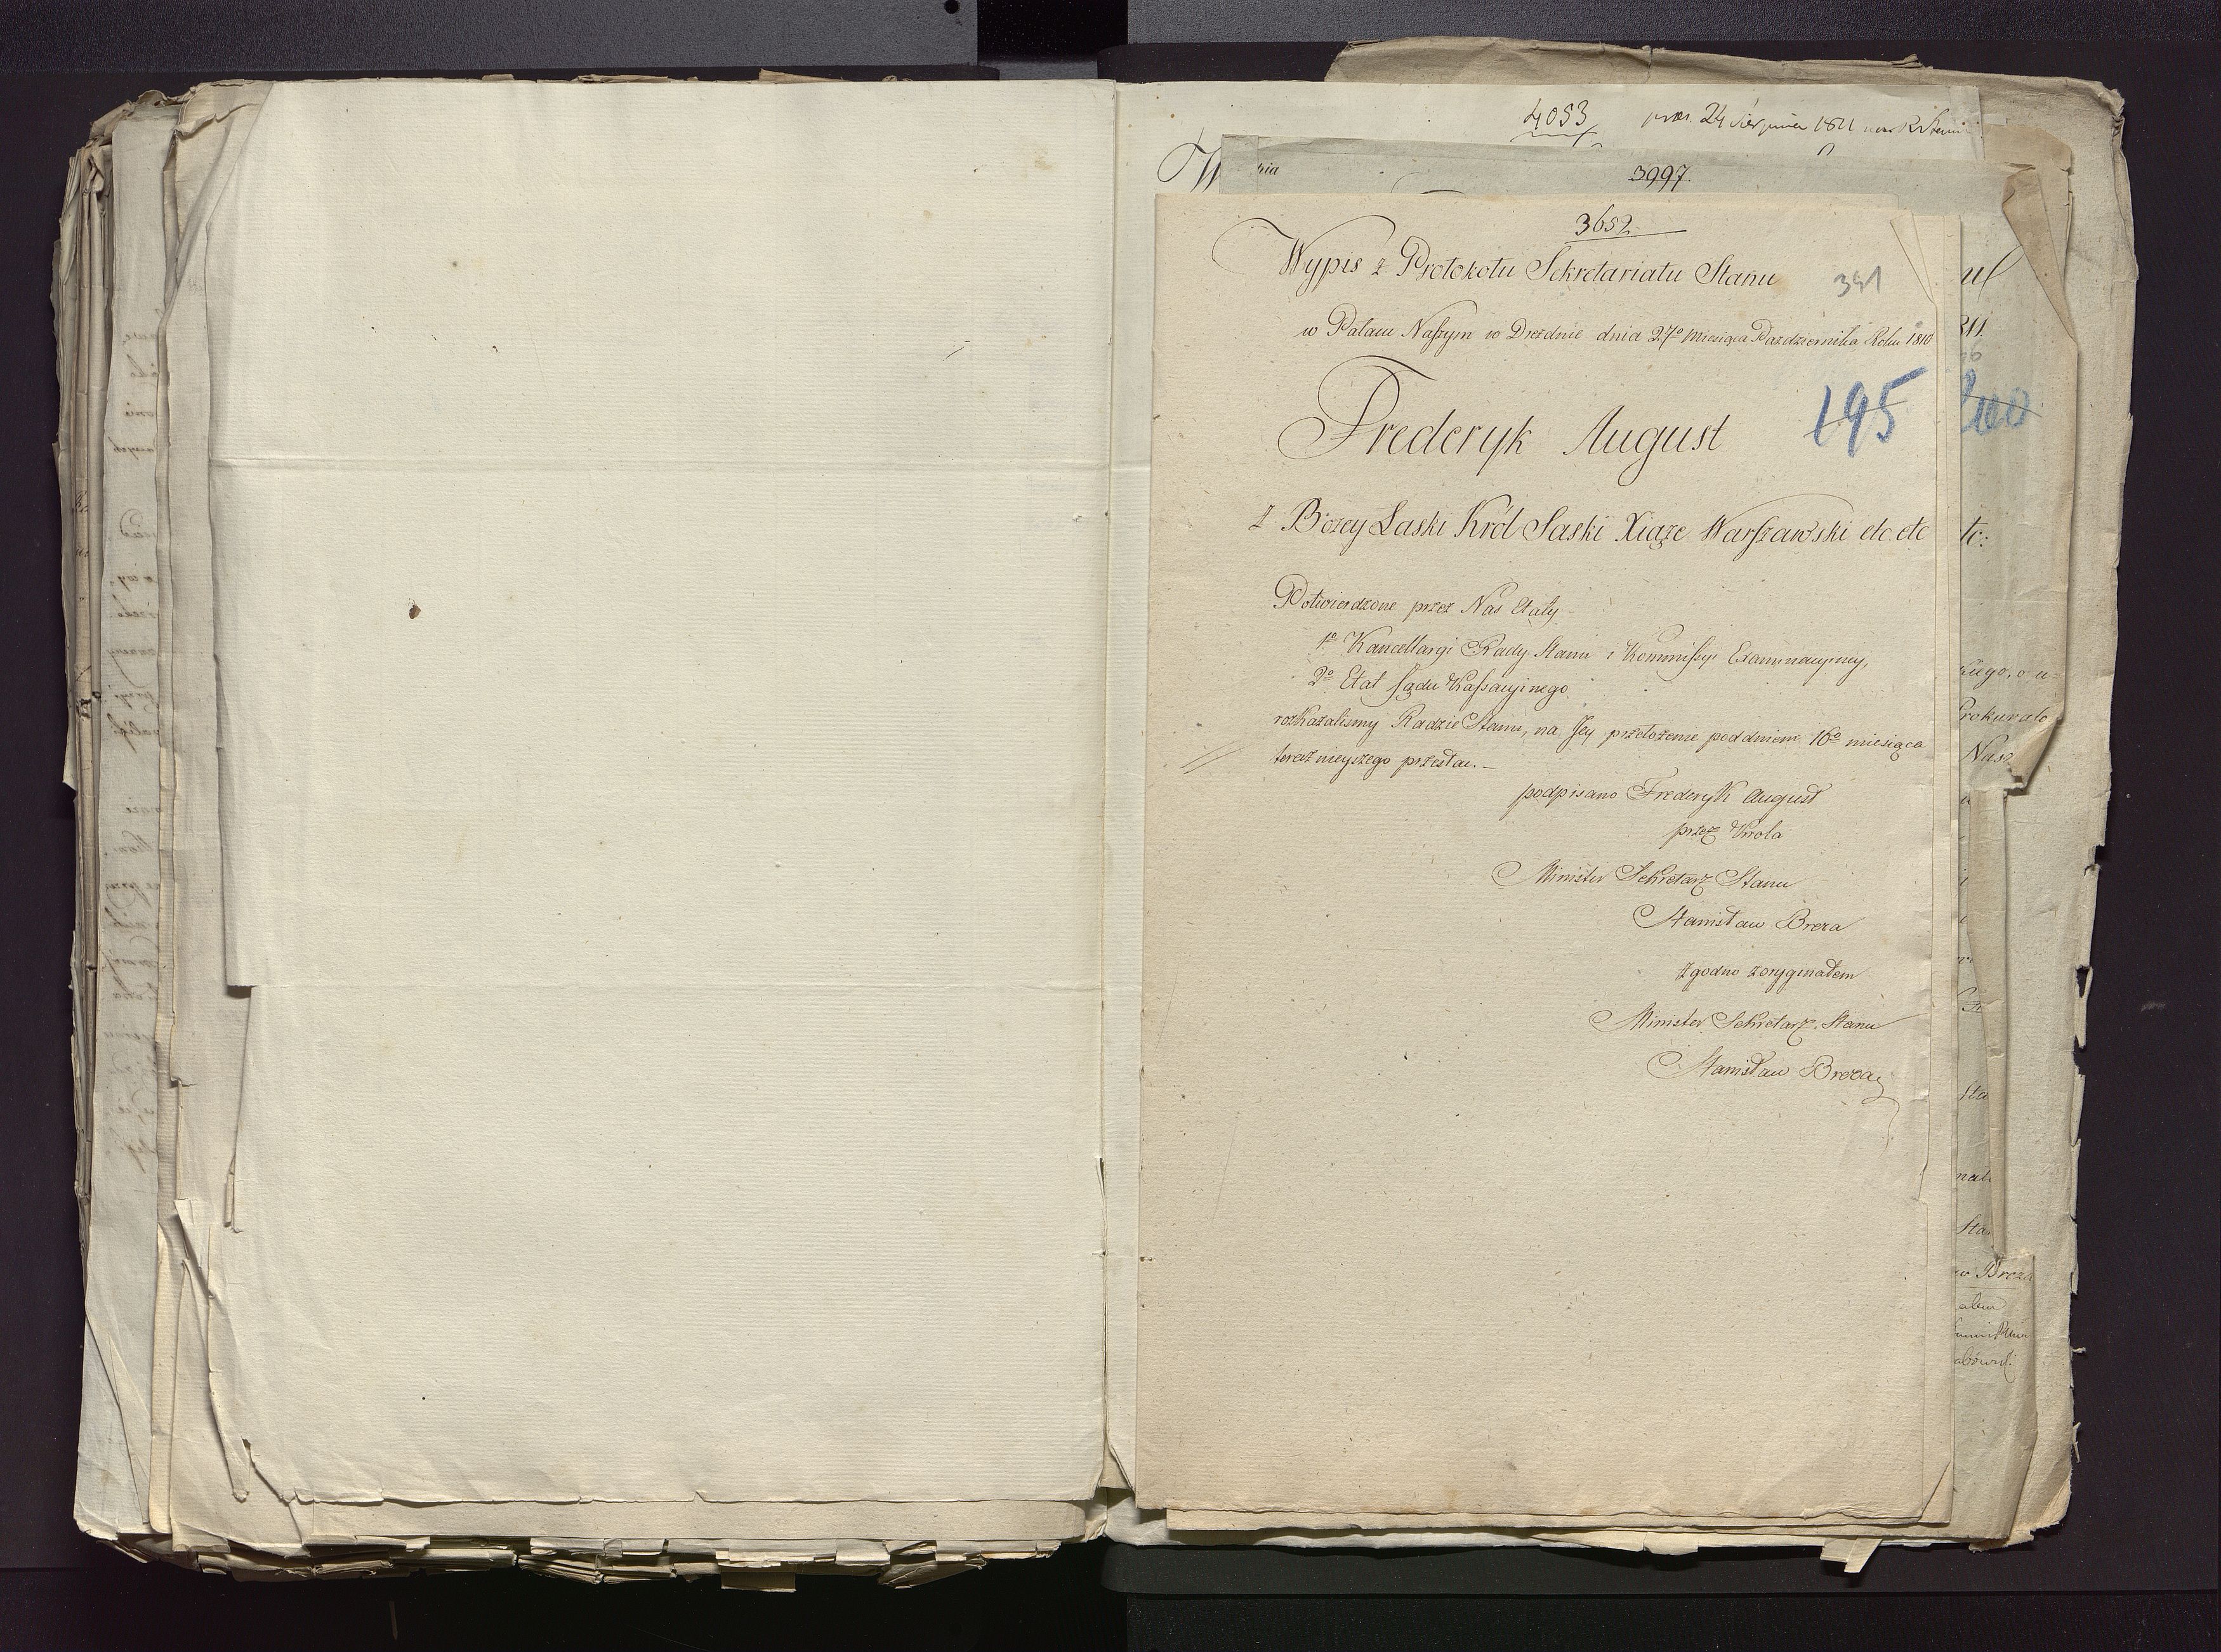 4053
24 Sierpnia 1811
3997.
3652.
Wypis z Protokołu Sekretariatu Stanu
391
w Pałacu Naszym w Dreźdnie dnia 27º Miesiąca Pazdziernika Roku 1810
195
200
Frederyk August
z Bożey Łaski Król Saski Xiąże Warszawski etc. etc
Potwierdzone przez Nas Etaty
1º Kancellaryi Rady Stanu i Kommissyi Examinacyiney,
2º Etat Sądu Kassacyinego
rozkazalismy Radzie Stanu, na Jey przełożenie pod dniem 16º miesiąca
teraznieyszego przesłac. –
podpisano Frederyk August
przez Króla
Minister Sekretarz Stanu
Stanisław Breza
Zgodno z oryginałem
Minister Sekretarz Stanu
Stanisław Breza